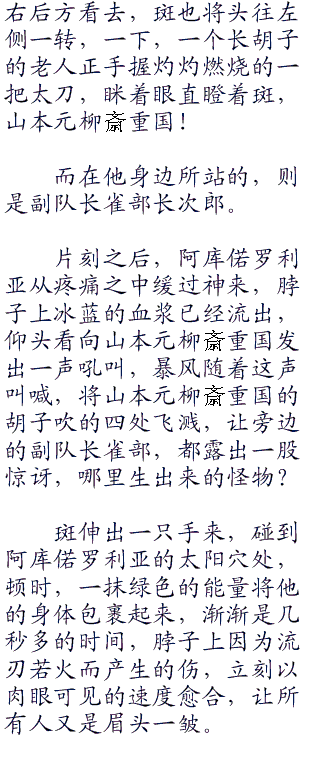 右后方看去，斑也将头往左
侧一转，一下，一个长胡子
的老人正手握灼灼燃烧的一
把太刀，眯着眼直瞪着斑，
山本元柳斎重国！
而在他身边所站的，则
是副队长雀部长次郎。
片刻之后，阿库偌罗利
亚从疼痛之中缓过神来，脖
子上冰蓝的血浆已经流出，
仰头看向山本元柳斎重国发
出一声吼叫，暴风随着这声
叫喊，将山本元柳斎重国的
胡子吹的四处飞溅，让旁边
的副队长雀部，都露出一股
惊讶，哪里生出来的怪物？
斑伸出一只手来，碰到
阿库偌罗利亚的太阳穴处，
顿时，一抹绿色的能量将他
的身体包裹起来，渐渐是几
秒多的时间，脖子上因为流
刃若火而产生的伤，立刻以
肉眼可见的速度愈合，让所
有人又是眉头一皱。